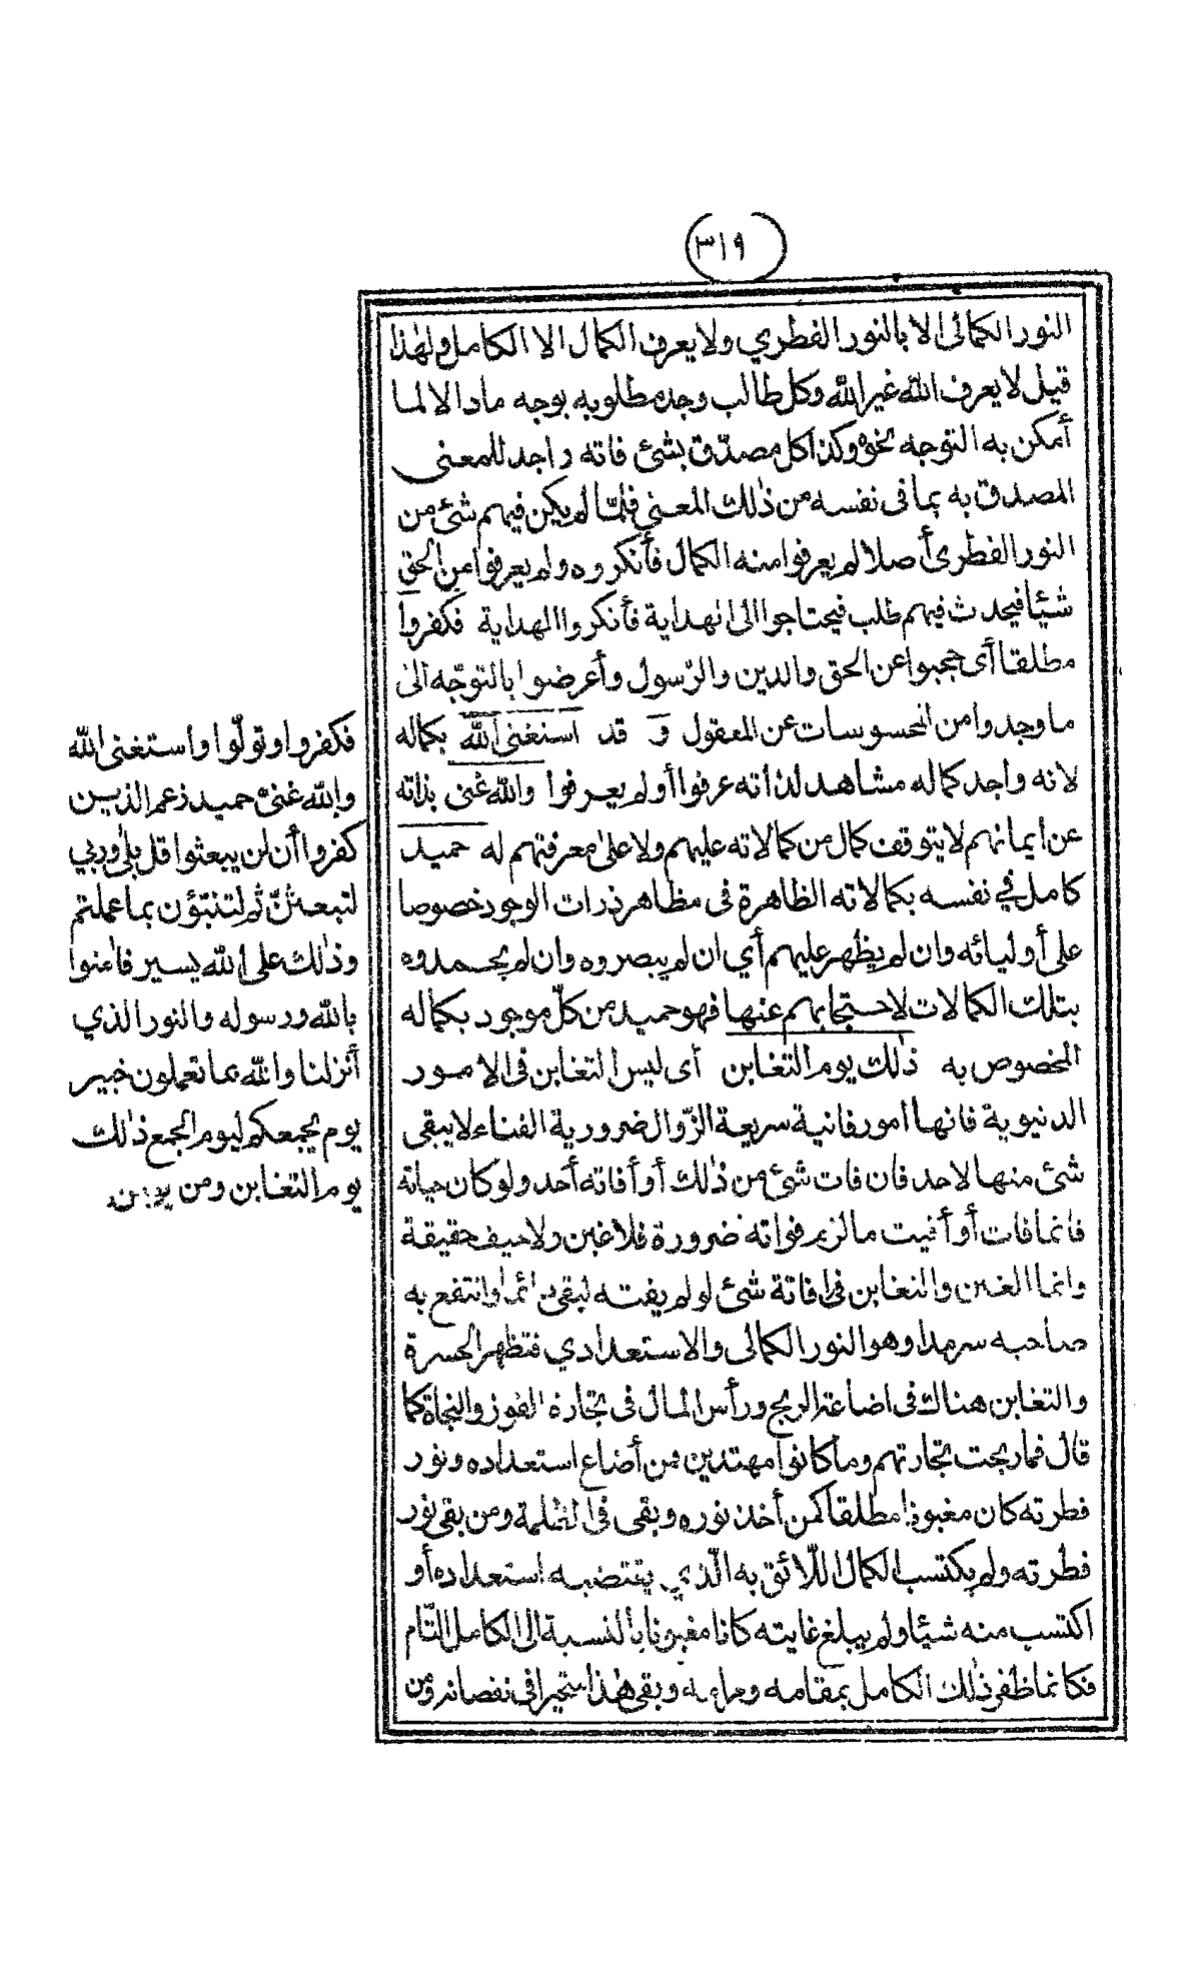 (٣١٩)
النور الكمالى الا بالنور الفطري ولا يعرف الكمال الا الكامل ولهٰذا
قيل لا يعرف الله غير الله وكل طالب وجد مطلوبه بوجه ما والا لما
أمكن به التوجه نحوه وكذا كل مصدّق بشئ فانه واجد للمعنى
المصدق به بما فى نفسه من ذٰلك المعنى فلمّا لم يكن فيهم شئ من
النور الفطرى أصلا لم يعرفوا منه الكمال فأنكروه ولم يعرفوا من الحق
شيئا فيحدث فيهم طلب فيحتاجوا الى الهداية فأنكروا الهداية فكفروا
مطلقا أى حجبوا عن الحق والدين والرّسول وأعرضوا بالتوجّه الى
ما وجدوا من المحسوسات عن المعقول و قد استغنى الله بكماله
لانه واجد كماله مشاهد لذاته عرفوا أو لم يعرفوا والله غنى بذاته
عن ايمانهم لا يتوقف كمال من كمالاته عليهم ولا على معرفتهم له حميد
كامل في نفسه بكمالاته الظاهرة فى مظاهر ذرات الوجود خصوصا
على أوليائه وان لم يظهر عليهم أي ان لم يبصروه وان لم يحمدوه
بتلك الكمالات لاحتجابهم عنها فهو حميد من كلّ موجود بكماله
المخصوص به ذٰلك يوم التغابن أى ليس التغابن فى الامور
الدنيوية فانها أمور فانية سريعة الزّوال ضرورية الفناء لا يبقى
شئ منها لاحد فان فات شئ من ذٰلك أو أفاته أحد ولو كان حياته
فانما فات أو أفيت ما لزم فواته ضرورة فلا غبن ولا حيف حقيقة
وانما الغبن والتغابن فى افاتة شئ لو لم يفته لبقى دائما وانتفع به
صاحبه سرمدا وهو النور الكمالى والاستعدادي فتظهر الحسرة
والتغابن هناك فى اضاعة الربح ورأس المال فى تجارة الفوز والنجاة كما
قال فما ربحت تجارتهم وما كانوا مهتدين فمن أضاع استعداده ونور
فطرته كان مغبونا مطلقا كمن أخذ نوره وبقى فى الظلمة ومن بقى نور
فطرته ولم يكتسب الكمال اللّائق به الّذي يقتضيه استعداده أو
اكتسب منه شيئا ولم يبلغ غايته كان مغبونا بالنسبة الى الكامل التّام
فكانما ظفر ذٰلك الكامل بمقامه ومرامه وبقى هٰذا متحيرا فى نقصانه ومن
فكفروا وتولّوا واستغنى الله
والله غنىّ حميد زعم الذين
كفروا أن لن يبعثوا قل بلىٰ وربي
لتبعثنّ ثم لتنبّؤن بما عملتم
وذٰلك على الله يسير فاٰمنوا
بالله ورسوله والنور الذي
أنزلنا والله بما تعملون خبير
يوم يجمعكم ليوم الجمع ذٰلك
يوم التغابن ومن يؤمن